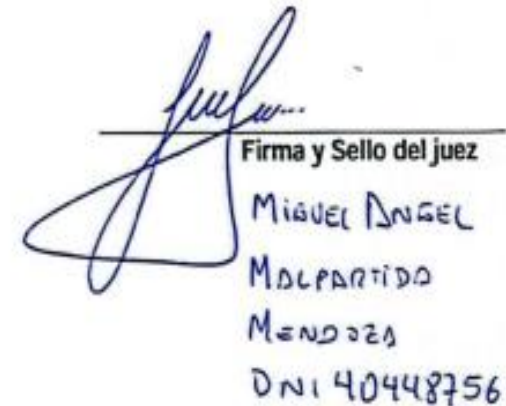 Firma y Sello del juez
MIGUEL ANGEL
MALPARTIDA
MENDOZA
DNI 40448756